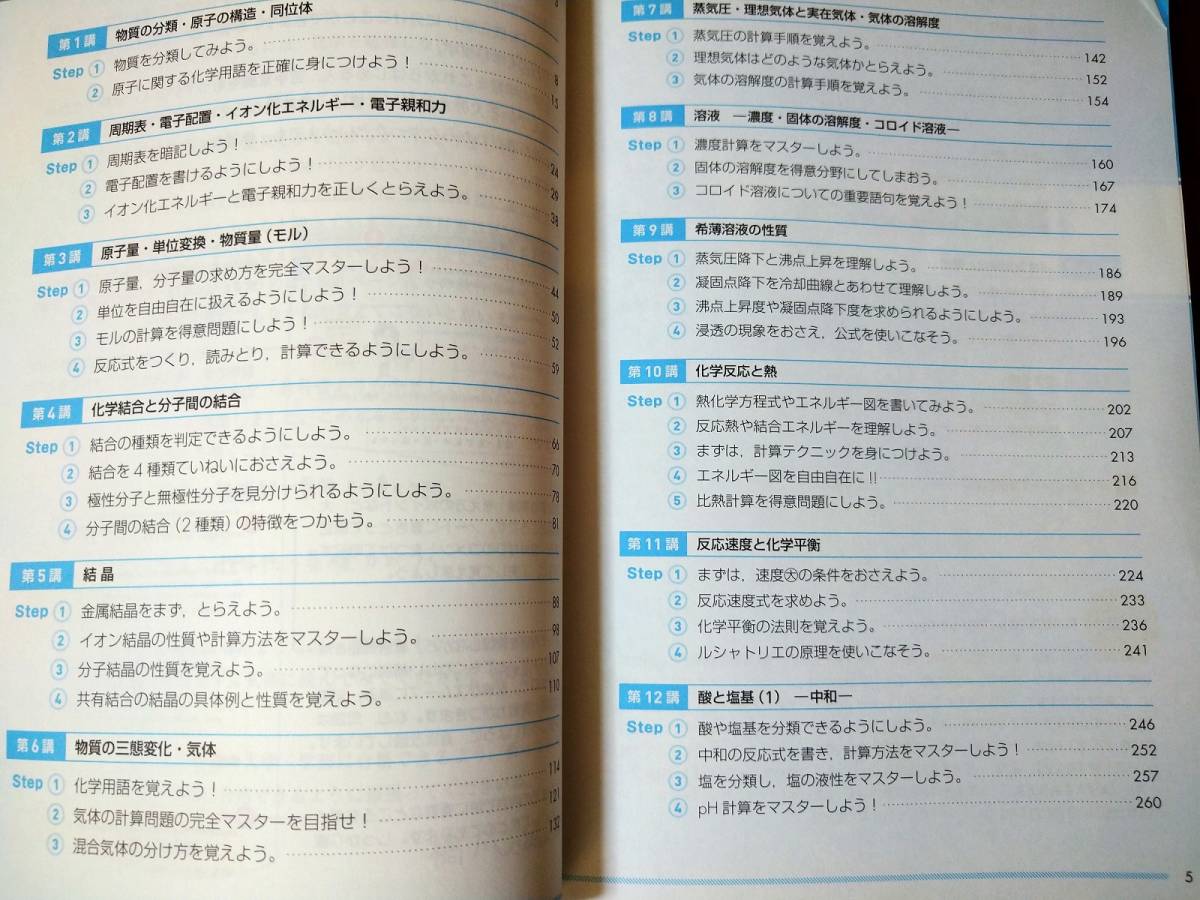 第1講 物質の分類・原子の構造・同位体
Step ① 物質を分類してみよう。 8
② 原子に関する化学用語を正確に身につけよう! 15
第2講 周期表・電子配置・イオン化エネルギー・電子親和力
Step ① 周期表を暗記しよう! 24
② 電子配置を書けるようにしよう! 29
③ イオン化エネルギーと電子親和力を正しくとらえよう。 38
第3講 原子量・単位変換・物質量(モル)
Step ① 原子量,分子量の求め方を完全マスターしよう! 44
② 単位を自由自在に扱えるようにしよう! 50
③ モルの計算を得意問題にしよう! 52
④ 反応式をつくり,読みとり,計算できるようにしよう。 59
第4講 化学結合と分子間の結合
Step ① 結合の種類を判定できるようにしよう。 66
② 結合を4種類ていねいにおさえよう。 70
③ 極性分子と無極性分子を見分けられるようにしよう。 78
④ 分子間の結合(2種類)の特徴をつかもう。 81
第5講 結晶
Step ① 金属結晶をまず,とらえよう。 88
② イオン結晶の性質や計算方法をマスターしよう。 98
③ 分子結晶の性質を覚えよう。 107
④ 共有結合の結晶の具体例と性質を覚えよう。 110
第6講 物質の三態変化・気体
Step ① 化学用語を覚えよう! 114
② 気体の計算問題の完全マスターを目指せ! 121
③ 混合気体の分け方を覚えよう。 132
第7講 蒸気圧・理想気体と実在気体・気体の溶解度
Step ① 蒸気圧の計算手順を覚えよう。 142
② 理想気体はどのような気体かとらえよう。 152
③ 気体の溶解度の計算手順を覚えよう。 154
第8講 溶液 ―濃度・固体の溶解度・コロイド溶液―
Step ① 濃度計算をマスターしよう。 160
② 固体の溶解度を得意分野にしてしまおう。 167
③ コロイド溶液についての重要語句を覚えよう! 174
第9講 希薄溶液の性質
Step ① 蒸気圧降下と沸点上昇を理解しよう。 186
② 凝固点降下を冷却曲線とあわせて理解しよう。 189
③ 沸点上昇度や凝固点降下度を求められるようにしよう。 193
④ 浸透の現象をおさえ,公式を使いこなそう。 196
第10講 化学反応と熱
Step ① 熱化学方程式やエネルギー図を書いてみよう。 202
② 反応熱や結合エネルギーを理解しよう。 207
③ まずは,計算テクニックを身につけよう。 213
④ エネルギー図を自由自在に!! 216
⑤ 比熱計算を得意問題にしよう。 220
第11講 反応速度と化学平衡
Step ① まずは,速度㊛の条件をおさえよう。 224
② 反応速度式を求めよう。 233
③ 化学平衡の法則を覚えよう。 236
④ ルシャトリエの原理を使いこなそう。 241
第12講 酸と塩基(1) ―中和―
Step ① 酸や塩基を分類できるようにしよう。 246
② 中和の反応式を書き,計算方法をマスターしよう! 252
③ 塩を分類し,塩の液性をマスターしよう。 257
④ pH計算をマスターしよう! 260
5